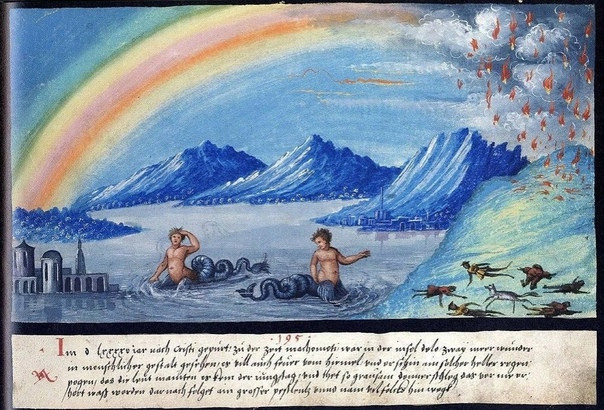 195
Im d lxxxxv iar nach Cristi gepurt zu der zeit machometi war in der insel delo zway meer wunder
in menschlicher gestalt gesehen, es vill auch feüer vom hymel, und erschin ain solcher heller regen
pogen, das die leut mainten es kem der iüngstag, und thet so grausam donnerschleg das vor nie er
hört waß worden dar nach folget ain grosser pestlentz unnd nam vil folcks hin wegk.